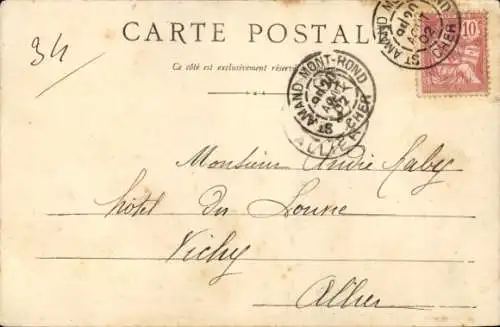 34
CARTE POSTALE
Ce côté est exclusivement réservé
ST AMAND MONT-ROND
CHER
20
AOUT
02
ST AMAND M
CHER
20
02
10
ALLIER
Monsieur André Raby
hôtel du Louvre
Vichy
Allier